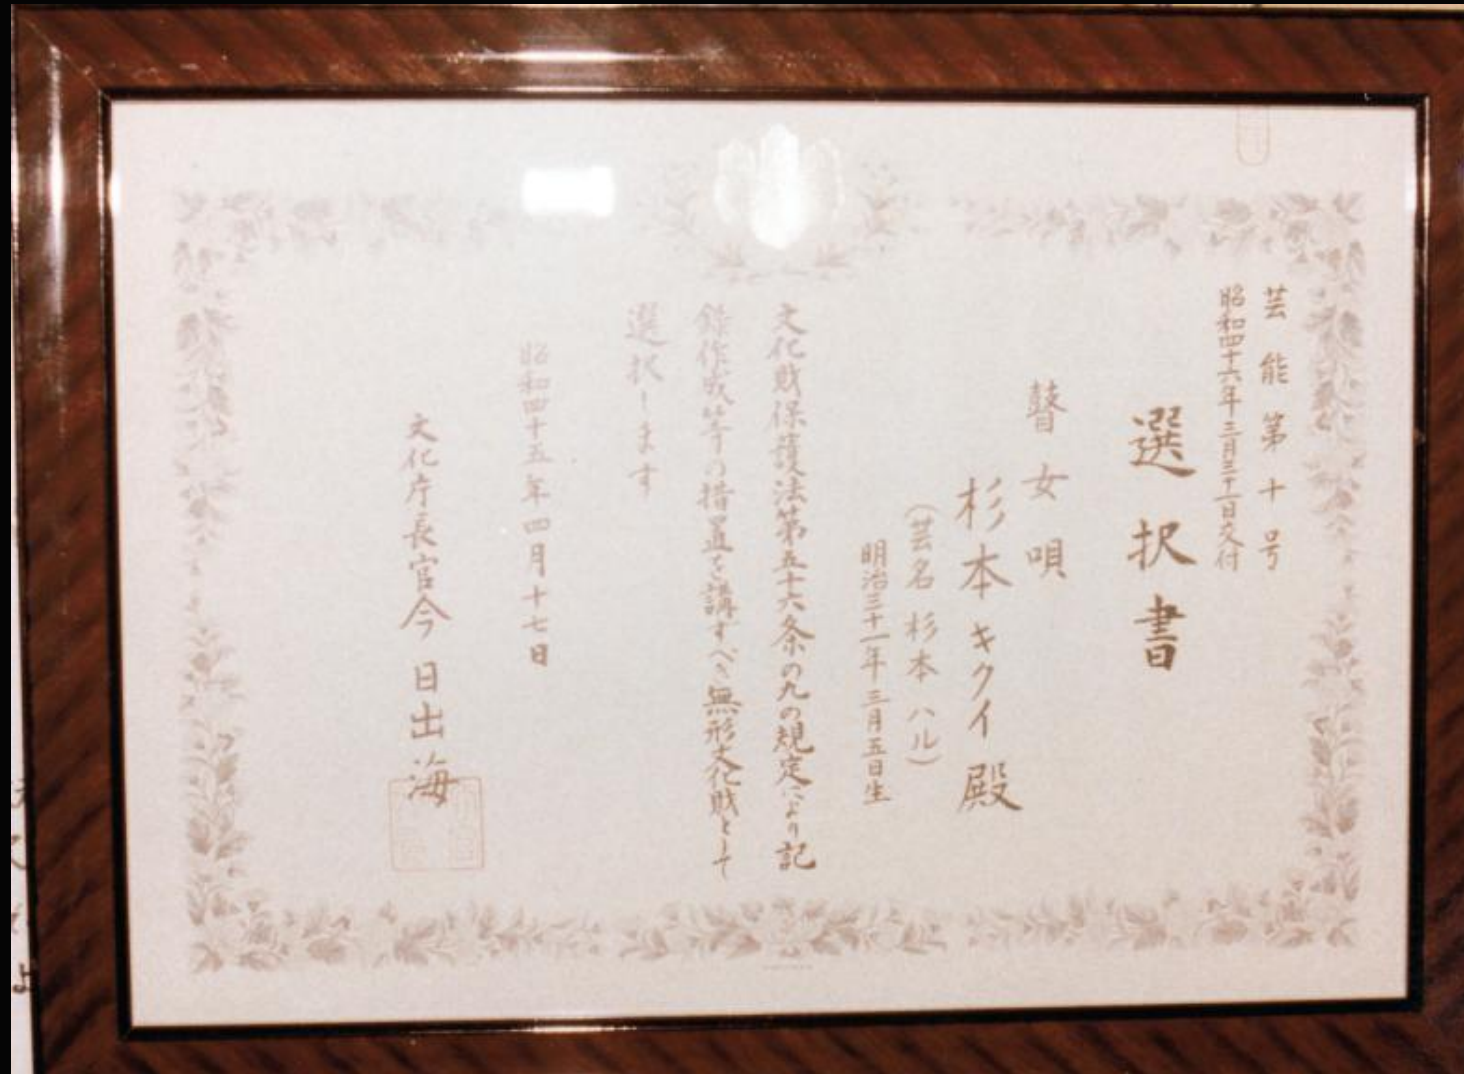 芸能第十号
昭和四十六年三月三十一日交付
選択書
瞽女唄
杉本キクイ殿
(芸名 杉本ハル)
明治三十一年三月五日生
文化財保護法第五十六条の九の規定により記
録作成等の措置を講ずべき無形文化財として
選択します
昭和四十五年四月十七日
文化庁長官今日出海